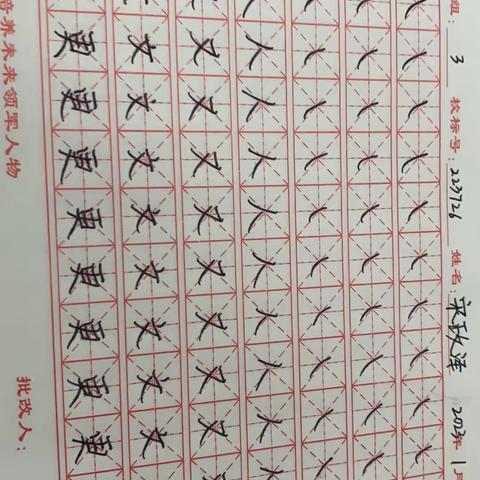 组：3 校标号：223726 姓名：宋政泽 2023年1月
人人人人人人人人
又又又又又又又又
文文文文文文文文
更更更更更更更更
培养未来领军人物 批改人：